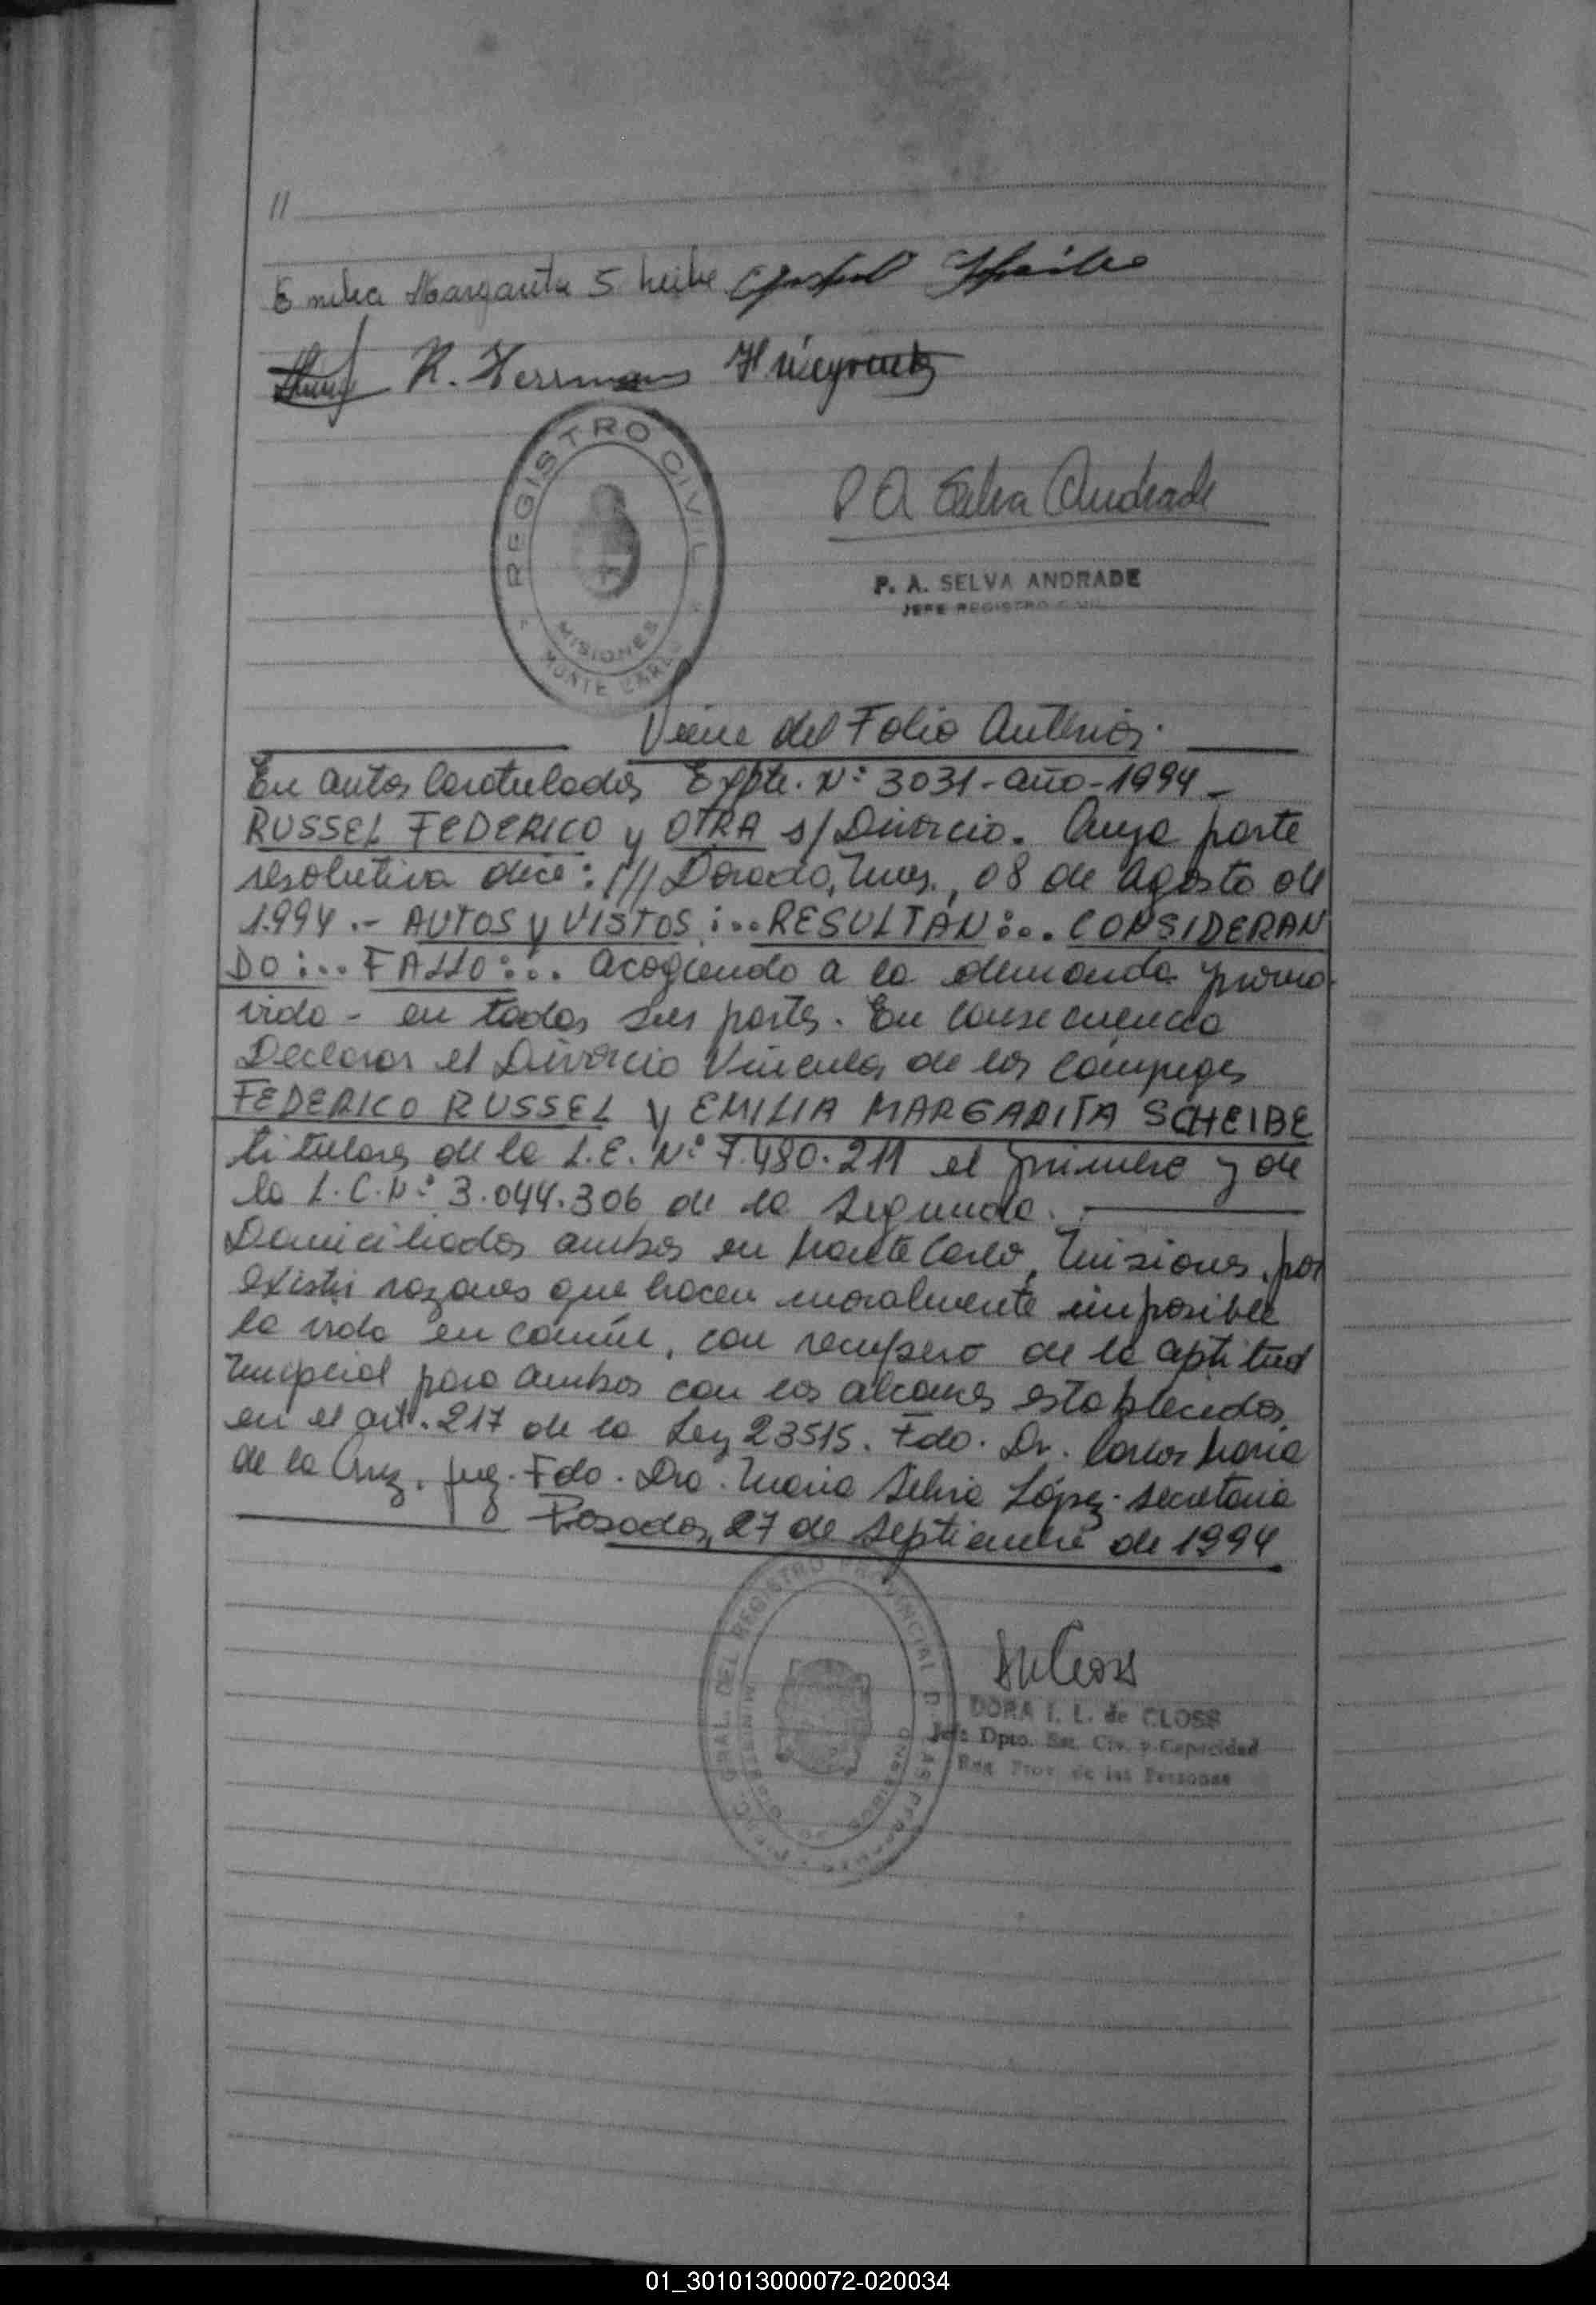 11
Emilia Margarita Scheibe
R. Herrmann
REGISTRO CIVIL
MISIONES
MONTE CARLO
P A Selva Andrade
P. A. SELVA ANDRADE
JEFE REGISTRO CIVIL
Viene del Folio Anterior.
En autos Carotulados Expte. Nº 3031-año-1994-
RUSSEL FEDERICO y OTRA s/Divorcio. Cuya parte
resolutiva dice: /// Dorado, Mnes., 08 de Agosto de
1.994.- AUTOS y VISTOS:... RESULTAN:... CONSIDERAN
DO:... FALLO:... Acogiendo a la demanda promo
vida - en todas sus partes. En consecuencia
Declarar el Divorcio Vincular de los cónyuges
FEDERICO RUSSEL y EMILIA MARGARITA SCHEIBE
titulares de la L.E. Nº 7.480.211 el primero y de
la L.C.Nº 3.044.306 de la segunda.
Domiciliados ambos en Monte Carlo, Misiones, por
existir razones que hacen moralmente imposible
la vida en común, con recupero de la aptitud
nupcial para ambos con los alcances establecidos
en el art. 217 de la Ley 23515. Fdo. Dr. Carlos María
de la Cruz. Juez. Fdo. Dra. María Silvia López - Secretaria
Posadas, 27 de Septiembre de 1994
DIREC. GRAL. DEL REGISTRO PROVINCIAL DE LAS PERSONAS
MINISTERIO DE GOBIERNO
DORA I. L. de CLOSS
Jefe Dpto. Est. Civ. y Capacidad
Reg. Prov. de las Personas
01_301013000072-020034